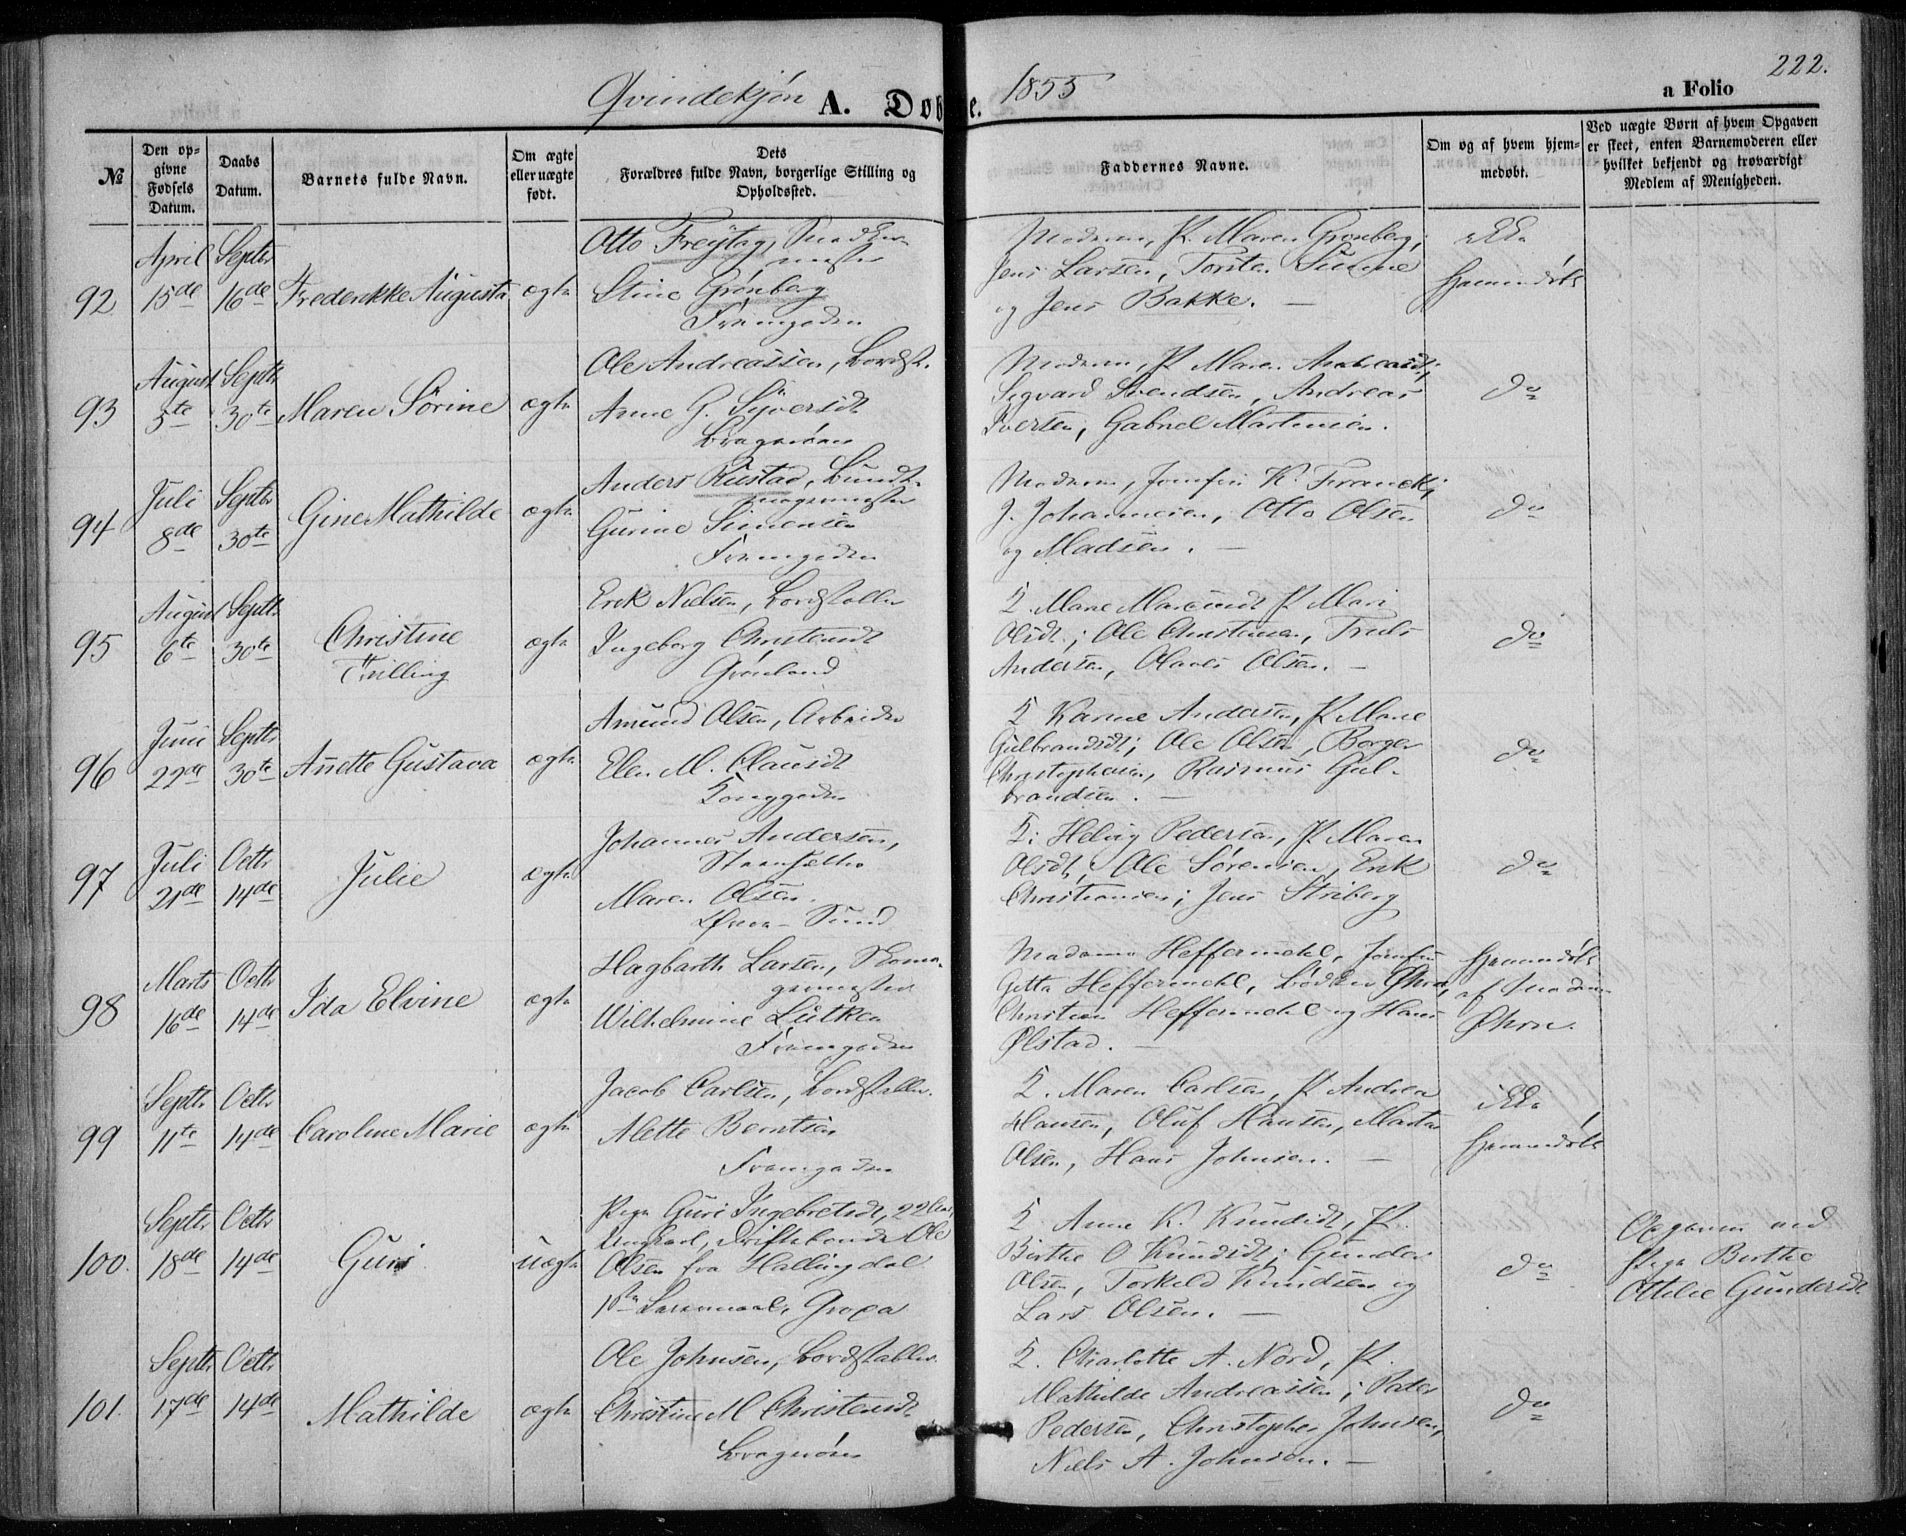 222.
Qvindekjøn A. Døbte. 1855 a Folio
№
Den opgivne Fødsels Datum.
Daabs Datum.
Barnets fulde Navn.
Om ægte eller uægte født.
Dets Forældres fulde Navn, borgerlige Stilling og Opholdssted.
Faddernes Navne.
Om og af hvem hjemmedøbt.
Ved uægte Børn af hvem Opgaven er skeet, enten Barnemoderen eller hvilket bekjendt og troværdigt Medlem af Menigheden.
92
April 15de
Septbr 16de
Frederikke Augusta
ægte
Otto Freytag,
Stine Grønberg
Moderen, P. Maren Grønberg,
Jens Larsen, Torsten
og Jens Bakke. —
ikke
hjemmedøbt
93
August 5te
Septbr 30te
Maren Sørine
ægte
Ole Andreassen,
Anne G. Syversdt
Bragnæs
Moderen, P. Maren Andreasdt;
Sigvard Svendsen, Andreas
Iversen, Gabriel Martinsen.
do
94
Juli 8de
Septbr 30te
Gine Mathilde
ægte
Anders Rustad,
Gurine Simensen
Moderen, Jomfru K. Franck;
J. Johannesen, Otto Olsen
og Madsen. —
do
95
August 6te
Septbr 30te
Christine
Tvilling
ægte
Erik Nielsen,
Ingeborg Christensdt
Grønland
Marie P. Mari
Olsdt; Ole Christensen, Truls
Andersen, Olaves Olsen. —
do
96
Juni 22de
Septbr 30te
Anette Gustava
ægte
Amund Olsen, Arbeider
Elen M. Clausdt
Karine Andersen, P. Marie
Gulbrandsdt; Ole Olsen, Borger
Christophersen, Rasmus Gulbrandsen. —
do
97
Juli 21de
Octbr 14de
Julie
ægte
Johannes Andersen,
Maren Olsen.
Øvre-Sund
Helvig Pedersen, P. Maren
Olsdt, Ole Sørensen, Erik
Christiansen; Jens Striberg
do
98
Marts 16de
Octbr 14de
Ida Elvine
ægte
Hagbarth Larsen, Skomagermester
Wilhelmine Lütken
Madame Heffermehl, Jomfru
Getta Heffermehl, Bødker Øhrn,
Christian Heffermehl og Hans
Ølstad. —
hjemmedøbt
af Madam
Øhrn.
99
Septbr 11te
Octbr 14de
Caroline Marie
ægte
Jacob Carlsen,
Alette Berntsen
Maren Carlsen, P. Andrea
Hansen, Oluf Hansen, Martin
Olsen, Hans Johnsen. —
ikke
hjemmedøbt
100.
Septbr 18de
Octbr 14de
Guri
uægte
Pige Guri Ingebretsdt, 22 Aar,
Ungkarl, Ole
Olsen fra Hallingdal
Anne K. Knudsdt, P.
Birthe O Knudsdt; Gunder
Olsen, Torkild Knudsen og
Lars Olsen. —
do
Opgaven ved
Pige Berthe
Ottilie Gundersdt
101.
Septbr 17de
Octbr 14de
Mathilde
ægte
Ole Johnsen,
Christine M Christensdt
Bragnæs
Charlotte A. Nord, P.
Mathilde Andreassen; Peder
Pedersen, Christopher Johnsen,
Niels A. Johnsen. —
do